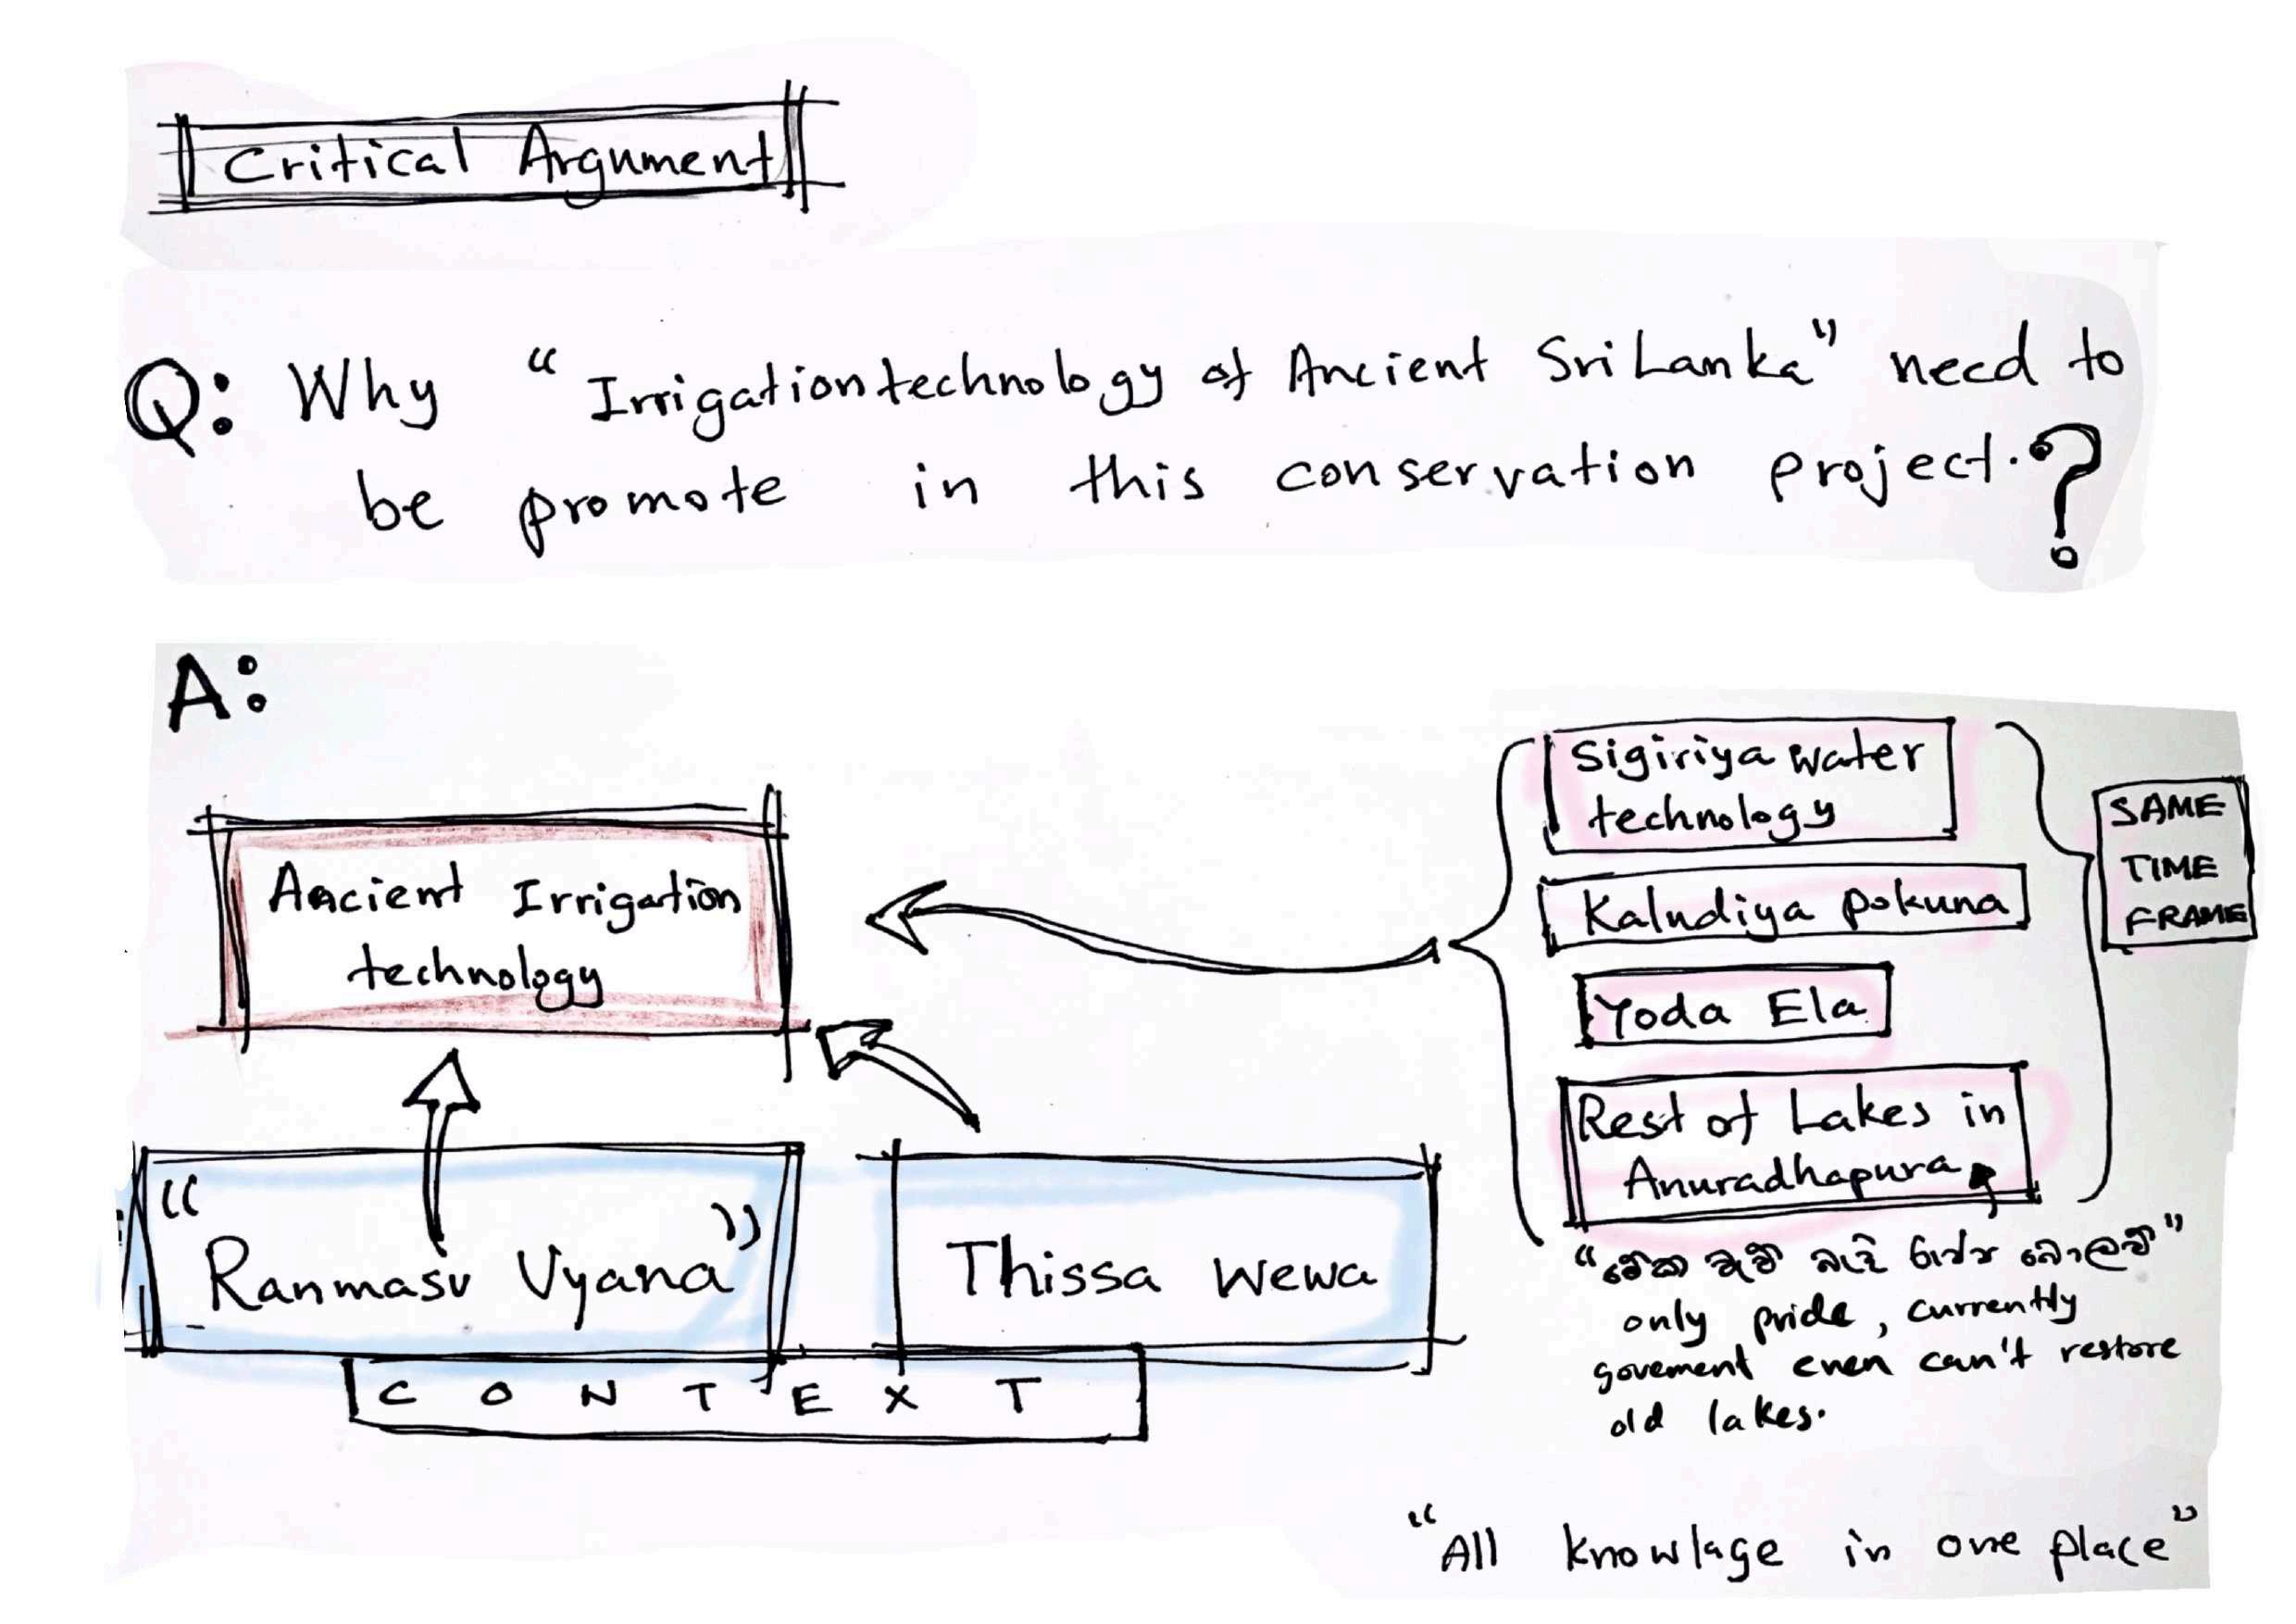 Critical Argument
Q: Why "Irrigation technology of Ancient Sri Lanka" need to
be promote in this conservation project.?
A:
Ancient Irrigation
technology
Sigiriya water
technology
Kaludiya pokuna
Yoda Ela
Rest of Lakes in
Anuradhapura
SAME
TIME
FRAME
"Ranmasu Vyana"
Thissa wewa
CONTEXT
only pride, currently
goverment even can't restore
old lakes.
"All knowlage in one place"